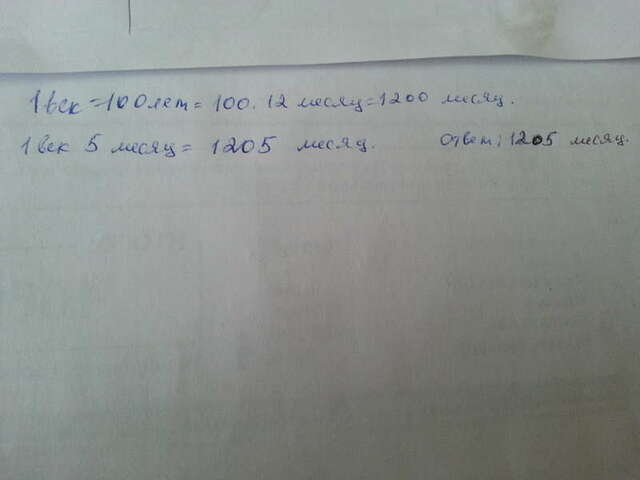 1 век = 100 лет = 100 . 12 месяц = 1200 месяц.
1 век 5 месяц = 1205 месяц. ответ: 1205 месяц.